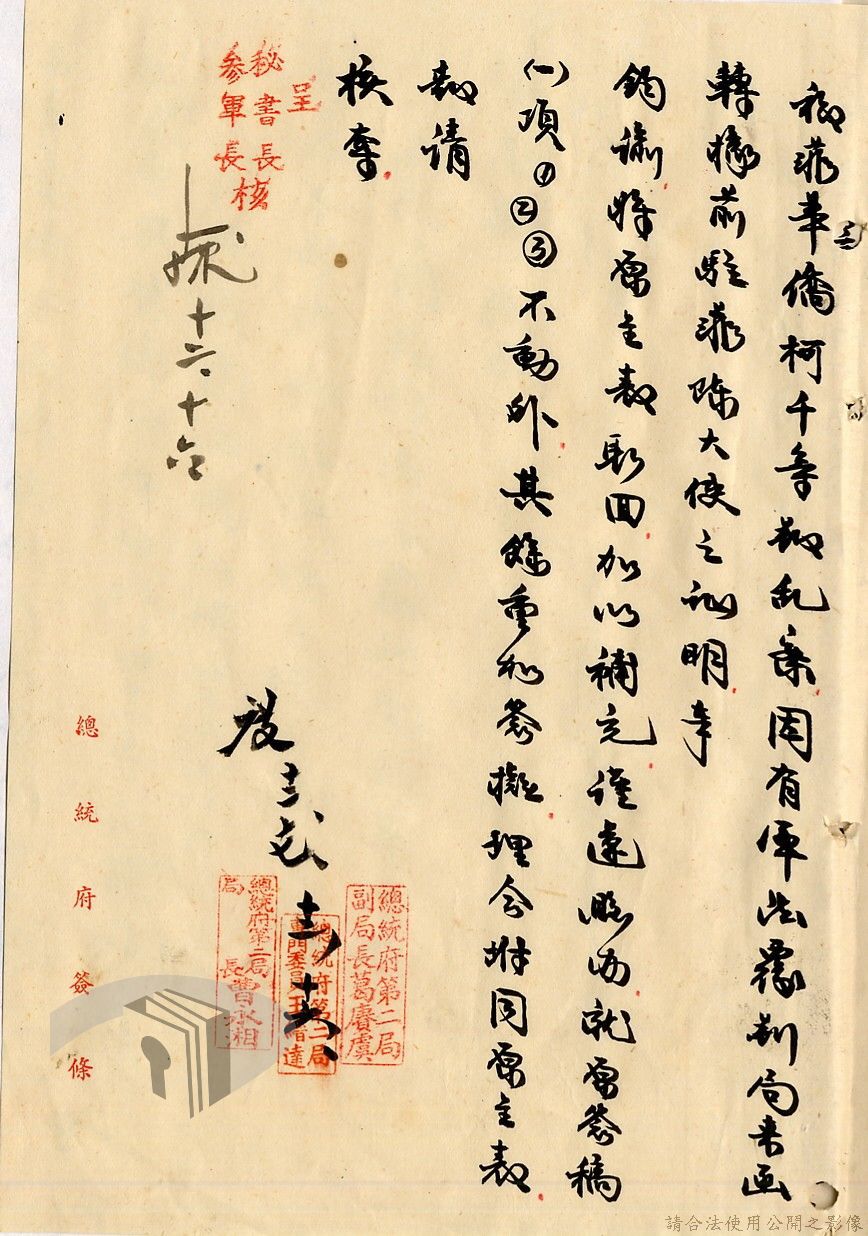 旅菲華僑柯千等叛乱案因有軍法覆判局来函
轉據前駐菲陳大使之证明幸
鈞諭將原呈表取回加以補充謹遵照而就原簽稿
㈠項①②③不動外其餘重加簽擬理合坿同原呈表
敬請
核奪
呈
秘書長
參軍長核
十二六十六
職
總統府第二局
副局長葛賡虞
總統府第二局
專門委員王
達
總統府第二局
局長曹永湘
總統府簽條
請合法使用公開之影像